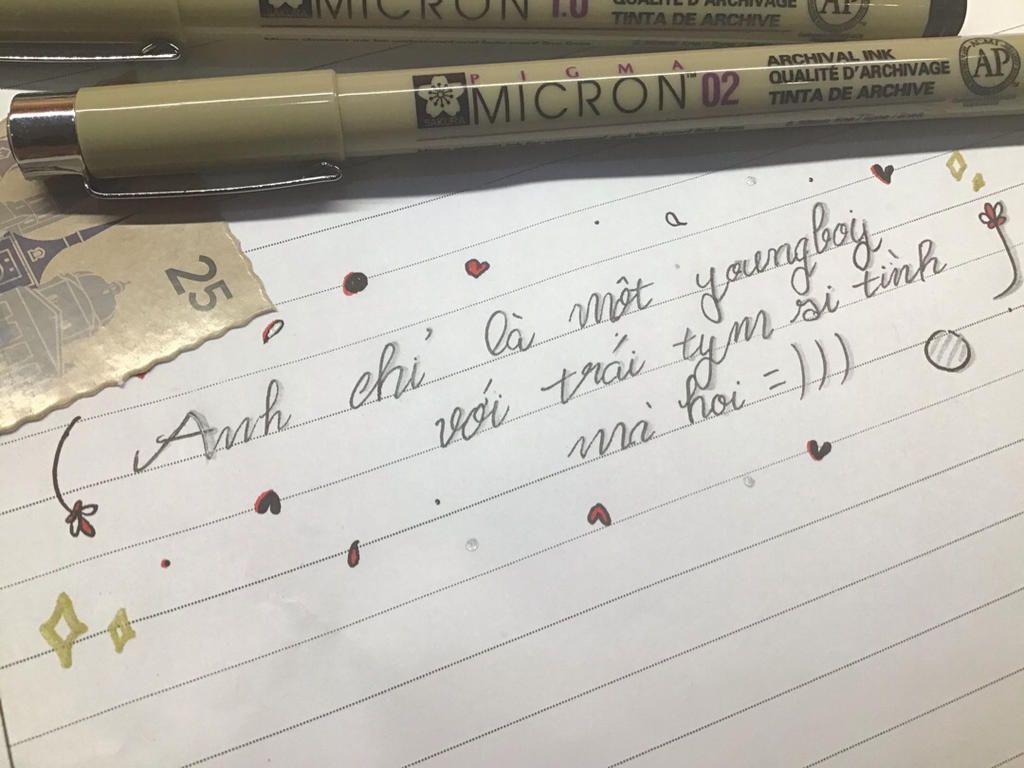 MICRON 1.0
QUALITÉ D'ARCHIVAGE
TINTA DE ARCHIVE
AP
PIGMA
MICRON™ 02
ARCHIVAL INK
QUALITÉ D'ARCHIVAGE
TINTA DE ARCHIVE
AP
25
Anh chỉ là một youngboy
với trái tym si tình
mà hoi =)))